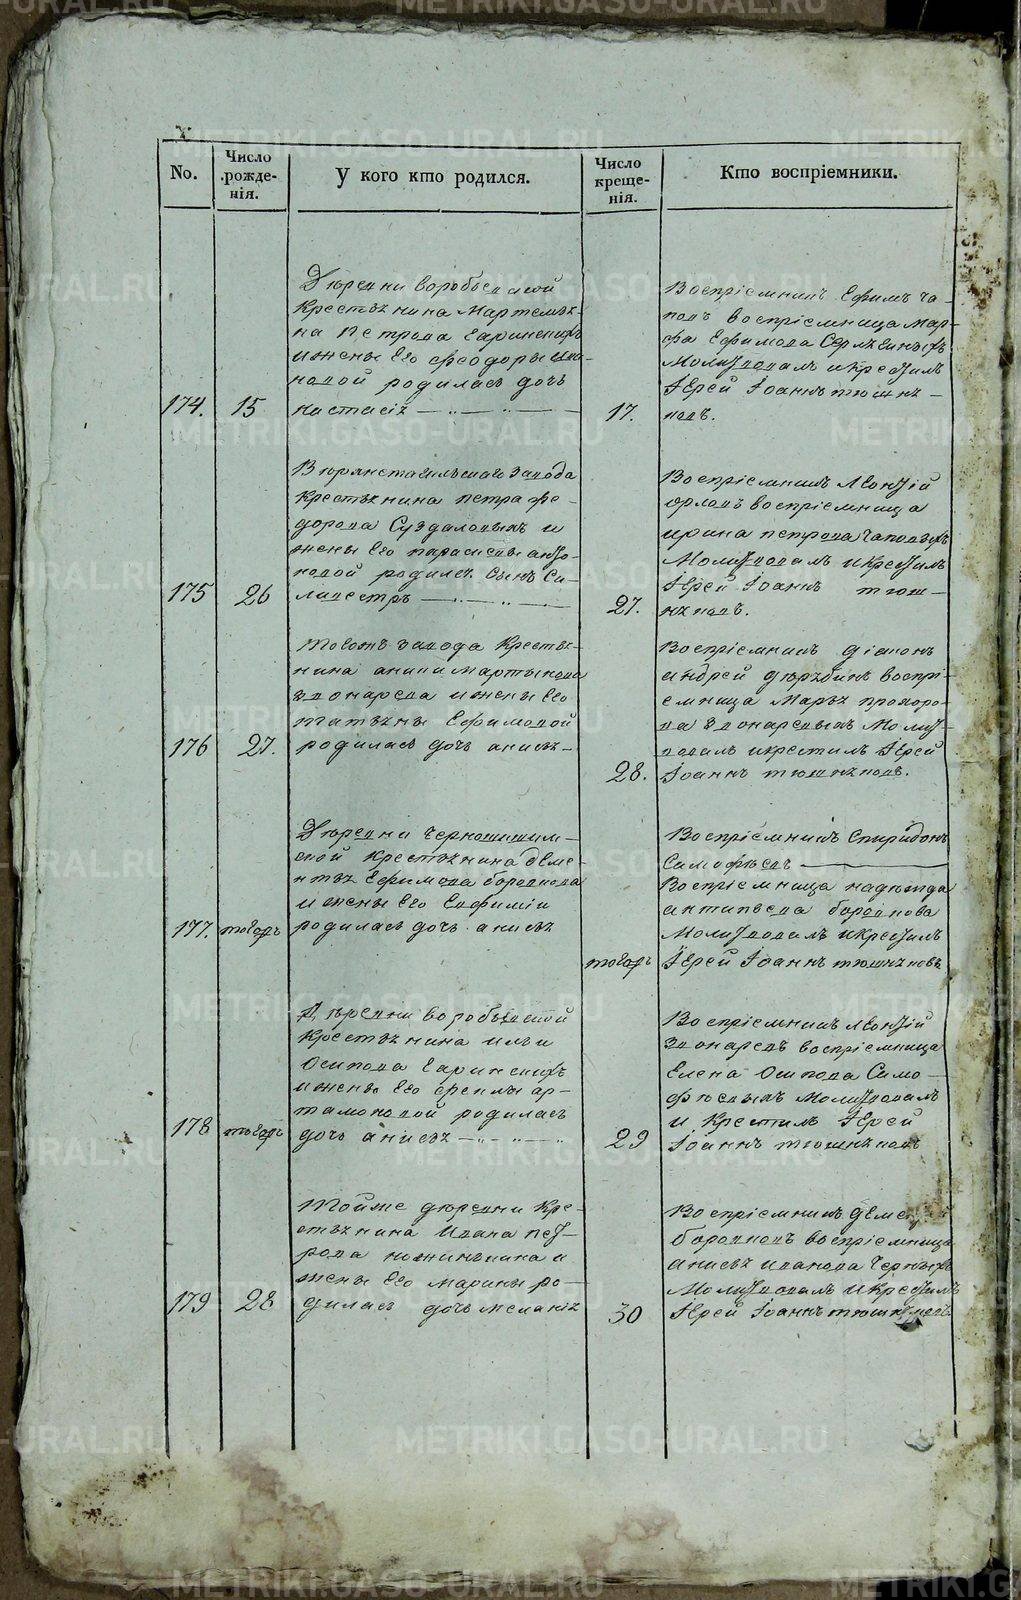 No.
Число рожде-
нія.
У кого кто родился.
Число креще-
нія.
Кто воспріемники.
174.
15
Деревни воробьевской
Крестьянина Мартемья-
на Петрова Гаринскихъ
и жены Его Феодоры Ива-
новой родилась дочь
Настасія
17.
Воспріемникъ Ефимъ Ча-
повъ воспріемница Мар-
фа Ефимова
Молитвовалъ и Крестилъ
Іерей Іоаннъ тюшня-
ковъ.
175
26
завода
Крестьянина петра фе-
дорова Суздаловыхъ и
жены Его парасковьи анто-
новой родился Сынъ Си-
ливестръ
27.
Воспріемникъ Леонтій
орловъ воспріемница
ирина петрова Чаповыхъ
Молитвовалъ и Крестилъ
Іерей Іоаннъ тюш-
няковъ.
176
27.
тогожъ завода Крестья-
нина аники мартынова
звонарева и жены Его
татьяны Ефимовой
родилась дочь анисья
28.
Воспріемникъ діаконъ
андрей дерябинъ воспрі-
емница Марья прохоро-
ва звонаревыхъ Молит-
вовалъ и крестилъ Іерей
Іоаннъ тюшняковъ.
177.
тогожъ
Деревни
Крестьянина деме-
нтья Ефимова боровкова
и жены Его Евфиміи
родилась дочь анисья
тогожъ
Воспріемникъ Спиридонъ
Симофѣевъ
Воспріемница надежда
антипьева боровкова
Молитвовалъ и Крестилъ
Іерей Іоаннъ тюшняковъ
178
тогожъ
Деревни воробьевской
Крестьянина ильи
Осипова Гаринскихъ
и жены Его феклы ар-
тамоновой родилась
дочь анисья
29
Воспріемникъ Леонтій
Звонаревъ воспріемница
Елена Осипова Симо-
фѣевыхъ Молитвовалъ
и Крестилъ Іерей
Іоаннъ тюшняковъ
179
28
Тойже деревни Кре-
стьянина Ивана пет-
рова кожинькина и
жены Его марины ро-
дилась дочь меланія
30
Воспріемникъ
боровковъ воспріемница
анисья иванова Черныхъ
Молитвовалъ и Крестилъ
Іерей Іоаннъ тюшняковъ
METRIKI.GASO-URAL.RU